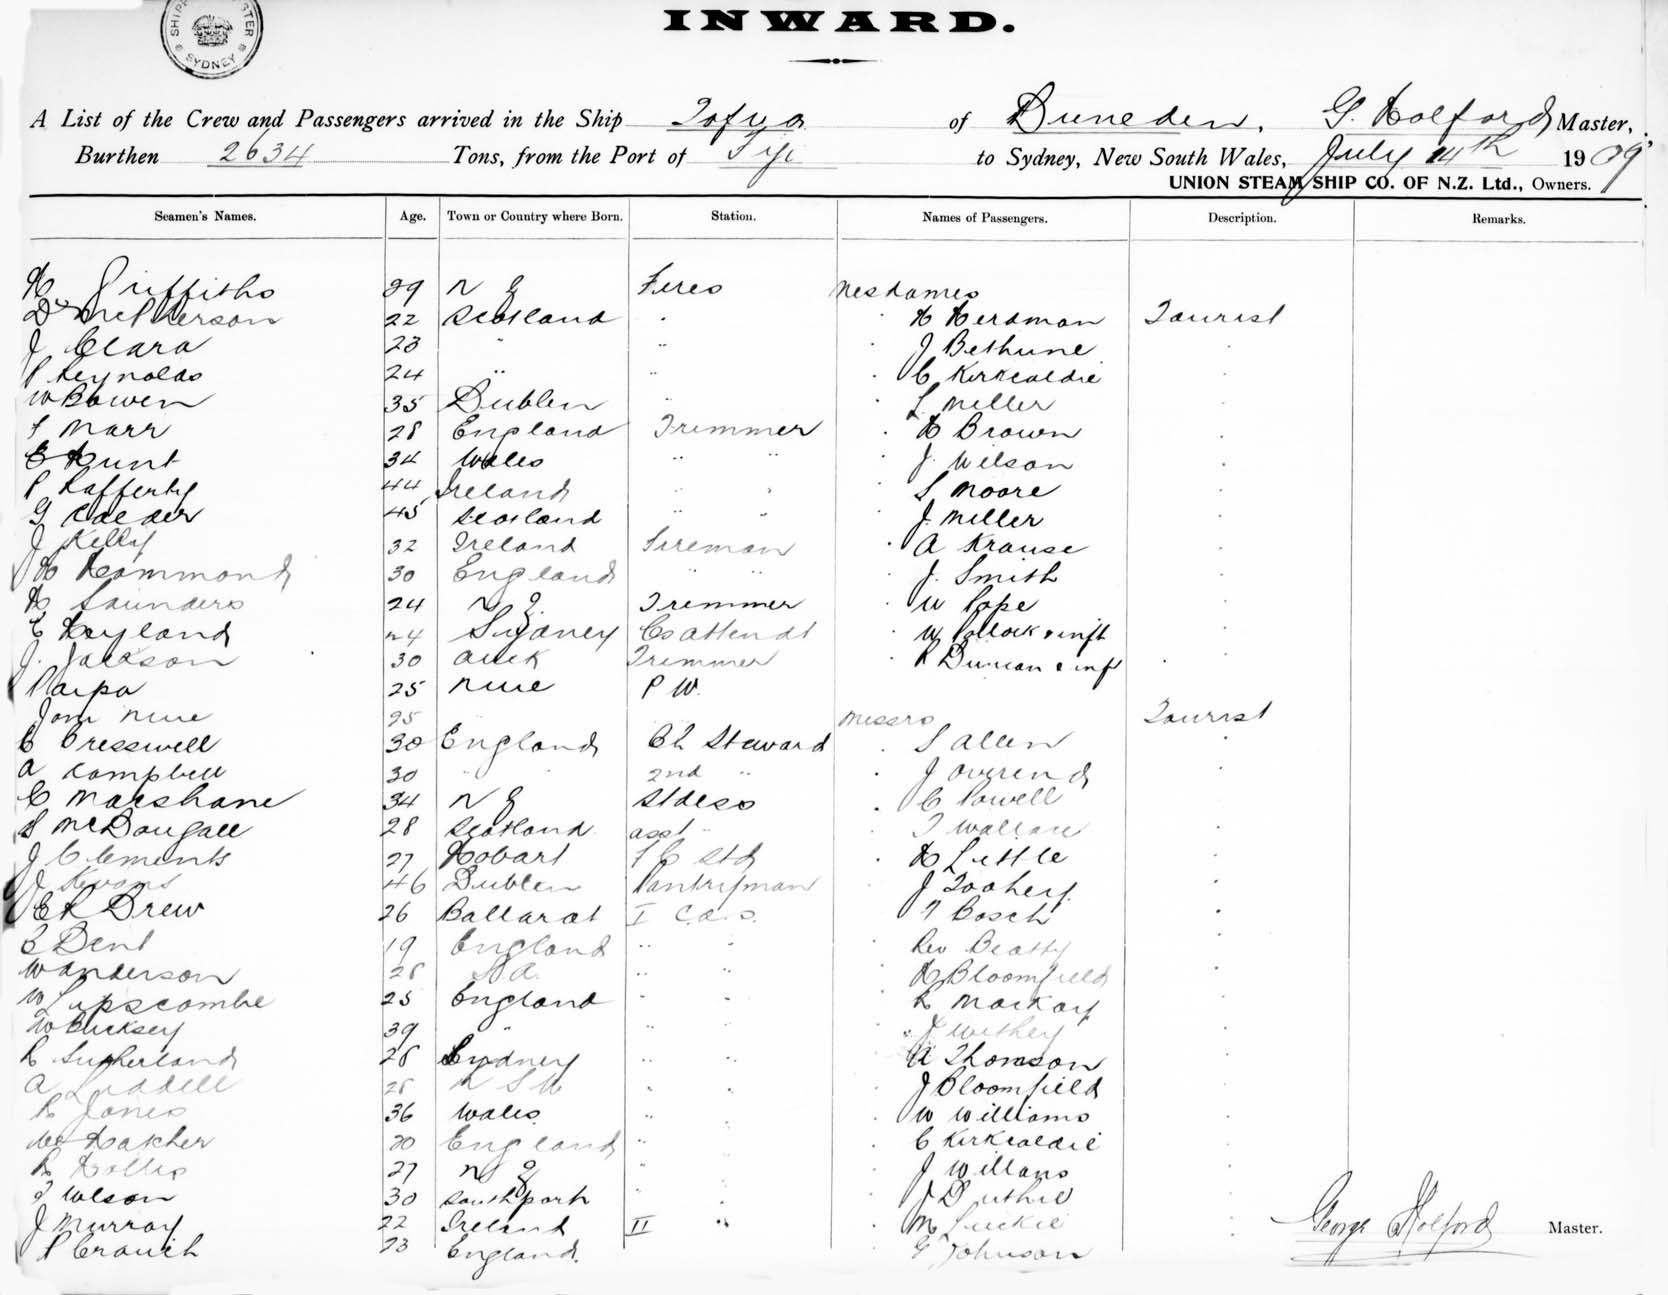 SHIPP STER
SYDNEY
INWARD.
A List of the Crew and Passengers arrived in the Ship Tofua of Duneden, G. Holford Master,
Burthen 2634 Tons, from the Port of Fiji to Sydney, New South Wales, July 14th 1909
UNION STEAM SHIP CO. OF N.Z. Ltd., Owners.
Seamen's Names. Age. Town or Country where Born. Station. Names of Passengers. Description. Remarks.
H Griffiths 29 N Z Fires Mesdames
D McPherson 22 Scotland " H Herdman Tourist
J Clara 23 " " J Bethune "
P Reynolds 24 " " C Kirkcaldie "
W Bowen 35 Dublen " L Miller "
F Marr 28 England Trimmer H Brown "
E Hunt 34 Wales " " J. Wilson "
P Rafferty 44 Ireland " " S Moore "
G Calder 45 Scotland " " J. Miller "
J Kelly 32 Ireland Fireman A Krause "
H Hammond 30 England " " J. Smith "
H Saunders 24 N Z. Trimmer W Pope "
E Hayland 24 Sydney Cs attendt W Pollock & inft "
J. Jackson 30 Auck Trimmer R Duncan & inft "
Paipa 25 Niue P W.
Jom Niue 25 Messrs Tourist
C Cresswell 30 England Ch Steward S Allen "
A Campbell 30 " " 2nd " J Overend "
C Marshane 34 N Z Stdess C Powell "
S McDougall 28 Scotland asst " T Wallace "
J Clements 27 Hobart F C Std H Little "
J 46 Dublen Pantryman J Toohey "
E R Drew 26 Ballarat I C.a.s. T Bosch "
E Dent 19 England " " Rev Beatty "
W Anderson 28 S A. " " H Bloomfield "
W Lipscombe 25 England " " R Mackay "
W Bucksey 39 " " " J Withey "
R Sutherland 28 Sydney " " A Thomson "
A Liddell 28 N S W " " J Bloomfield "
R Jones 36 Wales " " W Williams "
W Hatcher 20 England " C Kirkcaldie "
R Hollis 27 N Z " " J Willans "
T Wilson 30 Southport " " J Duthie "
J Murray 22 Ireland II " M Luckie " George Holford Master.
P Crouch 23 England. G Johnson "